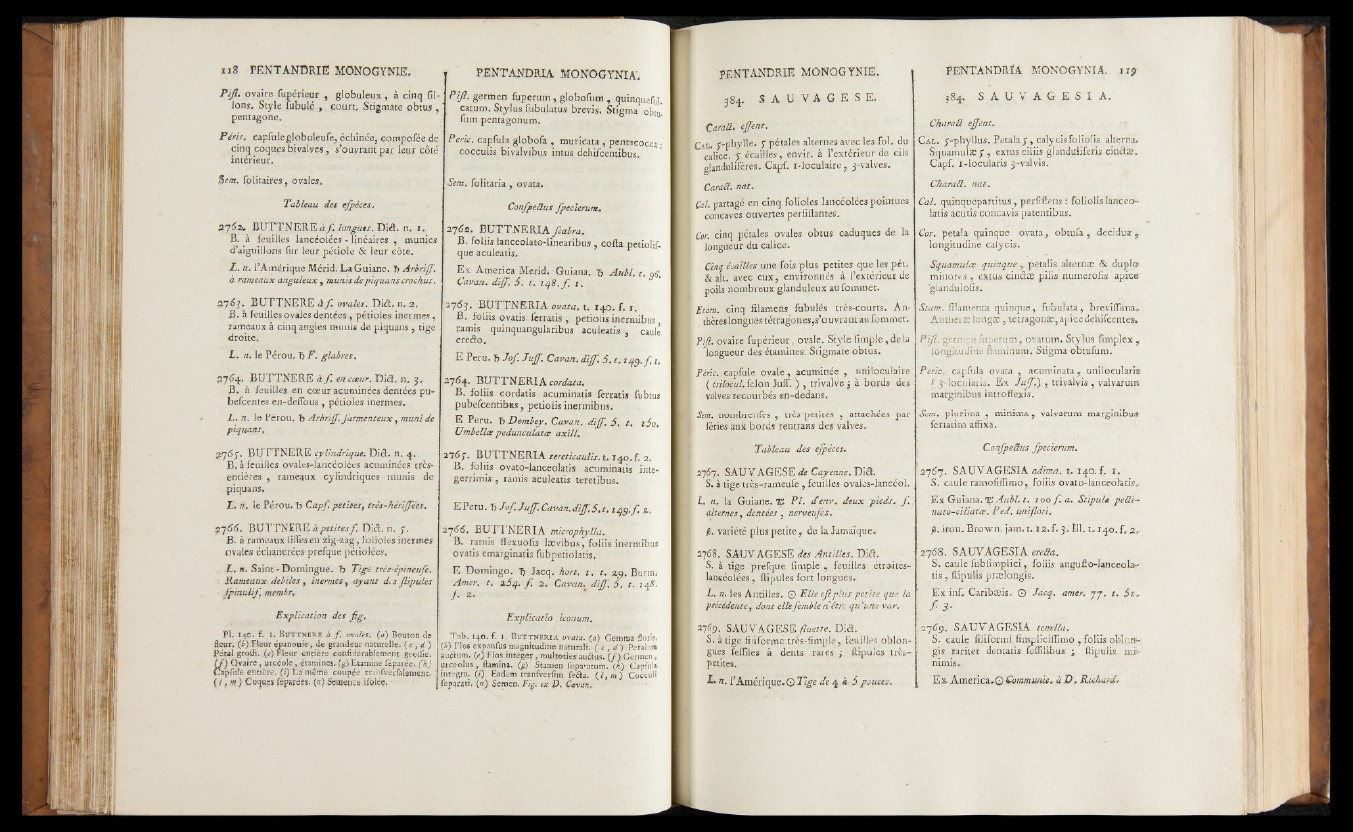 118 PENTANDRIE MONOGYNIE.
Pist. ovaire supérieur , globuleux, à cinq sil-
lons. Style subulé , court. Stigmate obtus ,
pentagone.
Péric. capsule globuleuse, échinée, composée de
cinq coques bivalves, s'ouvrant par leur côté
intérieur.
Sem. solitaires, ovales.
Tableau des espèces.
2762. BUTTNERE à f. longues. Dict. n. 1.
B. à feuilles lancéolées-linéaires , munies
d'aiguillons sur leur pétiole & leur côte.
L. n. l'Amérique Mérid. La Guiane. ♄ Arbriss.
à rameaux anguleux, munis de piquans crochus.
2763. BUTTNERE à f. ovales. Dict. n. 2.
B. à feuilles ovales dentées, pétioles inermes,
rameaux à cinq angles munis de piquans , tige
droite.
L. n. le Pérou. ♄ F. glabres.
2764. BUTTNERE à f. en cœur. Dict. n. 3.
B. à feuilles en cœur acuminées dentées pu-
bescentes en-dessous , pétioles inermes.
L. n. le Pérou. ♄ Arbriss. sarmenteux, muni de
piquans.
2765. BUTTNERE cylindrique. Dict. n. 4.
B. à feuilles ovales-lancéolées acuminées très-
entières , rameaux cylindriques munis de
piquans.
L. n. le Pérou. ♄ Caps. petites, très-hérissées.
2766. BUTTNERE à petites f. Dict. n. 5.
B. à rameaux lisses en zig-zag, folioles inermes
ovales échancrées presque pétiolées.
L. n. Saint-Domingue. ♄ Tige très-épineuse.
Rameaux debiles, inermes, ayant des stipules
spinulif. membr.
Explication des fig.
Pl. 140. f. 1. BUTTNERE à f. ovales. (a) Bouton de
fleur. (b) Fleur épanouie, de grandeur naturelle. (c, d)
Pétal grossi. (e) Fleur entière considérablement grossie.
(f) Ovaire, urcéole, étamines. (g) Etamine séparée. (h)
Capsule entière. (i) La même coupée transversalement.
(l, m) Coques séparées. (n) Semence isolée.
PENTANDRIA MONOGYNIA.
Pist. germen superum, globosum, quinquesul-
catum. Stylus subulatus brevis. Stigma obtu-
sum pentagonum.
Peric. capsula globosa , muricata, pentacocca :
cocculis bivalvibus intus dehiscentibus.
Sem. solitaria , ovata.
Conspectus specierum.
2762. BUTTNERIA scabra.
B. foliis lanceolato-linearibus , costa petiolis-
que aculeatis.
Ex America Merid. Guiana. ♄ Aubl. t. 96.
Cavan. diss. 5. t. 148. f. 1.
2763. BUTTNERIA ovata. t. 140. f. 1.
B. foliis ovatis serratis , petiolis inermibus,
ramis quinquangularibus aculeatis , caule
erecto.
E Peru. ♄ Jos. Juss. Cavan. diss. 5. t. 149. f. 1.
2764. BUTTNERIA cordata.
B. foliis cordatis acuminatis serratis subtus
pubescentibus, petiolis inermibus.
E Peru. ♄ Dombey. Cavan. diss. 5. t. 150.
Umbellæ pedunculatæ axill.
2765. BUTTNERIA tereticaulis. t. 140. f. 2.
B. foliis ovato-lanceolatis acuminatis inte-
gerrimis , ramis aculeatis teretibus.
E Peru. ♄ Jos. Juss. Cavan. diss. 5. t. 149. f. 2.
2766. BUTTNERIA microphylla.
B. ramis flexuosis lævibus, foliis inermibus
ovatis emarginatis subpetiolatis.
E Domingo. ♄ Jacq. hort. 1. t. 29. Burm.
Amer. t. 254. f. 2. Cavan. diss. 5. t. 148.
f. 2.
Explicatio iconum.
Tab. 140. f. 1. BUTTNERIA ovata. (a) Gemma floris.
(b) Flos expansus magnitudine naturali. (c, d) Petalum
auctum. (e) Flos integer, multoties auctus. (f) Germen,
urceolus, stamina. (g) Stamen separatum. (h) Capsula
integra. (i) Eadem transversim secta. (l, m) Cocculi
separati. (n) Semen. Fig. ex D. Cavan.
PENTANDRIE MONOGYNIE.
384. SAUVAGESE.
Caract. essent.
CAL. 5-phylle. 5 pétales alternes avec les fol. du
calice. 5 écailles, envir. à l'extérieur de cils
glandulifères. Caps. 1-loculaire, 3-valves.
Caract. nat.
Cal. partagé en cinq folioles lancéolées pointues
concaves ouvertes persistantes.
Cor. cinq pétales ovales obtus caduques de la
longueur du calice.
Cinq écailles une fois plus petites que les pét.
& alt. avec eux, environnés à l'extérieur de
poils nombreux glanduleux au sommet.
Etam. cinq filamens subulés très-courts. An-
thères longues tétragones, s'ouvrant au sommet.
Pist. ovaire supérieur, ovale. Style simple, de la
longueur des étamines. Stigmate obtus.
Péric. capsule ovale, acuminée , uniloculaire
( trilocul. selon Juss. ) , trivalve ; à bords des
valves recourbés en-dedans.
Sem. nombreuses , très petites , attachées par
séries aux bords rentrans des valves.
Tableau des espèces.
2767. SAUVAGESE de Cayenne. Dict.
S. à tige très-rameuse, feuilles ovales-lancéol.
L. n. la Guiane. ♃ Pl. d'env. deux pieds. f.
alternes, dentées, nerveuses.
β. variété plus petite, de la Jamaïque.
2768. SAUVAGESE des Antilles. Dict.
S. à tige presque simple , feuilles étroites-
lancéolées, stipules fort longues.
L. n. les Antilles. ☉ Elle est plus petite que la
précédente, dont elle semble n'être qu'une var.
2769. SAUVAGESE fluette. Dict.
S. à tige filiforme très-simple, feuilles oblon-
gues sessiles à dents rares ; stipules très-
petites.
L. n. l'Amérique. ☉ Tige de 4 à 5 pouces.
PENTANDRIA MONOGYNIA. 119
384. SAUVAGESIA.
Charact. essent.
CAL. 5-phyllus. Petala 5, calycis foliolis alterna.
Squamulæ 5, extus ciliis glanduliferis cinctæ.
Caps. 1-locularis 3-valvis.
Charact. nat.
Cal. quinquepartitus, persistens : foliolis lanceo-
latis acutis concavis patentibus.
Cor. petala quinque ovata, obtusa, decidua,
longitudine calycis.
Squamulæ quinque, petalis alternæ & duplo
minores , extus cinctæ pilis numerosis apice
glandulosis.
Stam. filamenta quinque, subulata, brevissima.
Antheræ longæ, tetragonæ, apice dehiscentes.
Pist. germen superum, ovatum. Stylus simplex,
longitudine staminum. Stigma obtusum.
Peric. capsula ovata , acuminata, unilocularis
( 3-locularis. Ex Juss.) , trivalvis, valvarum
marginibus introflexis.
Sem. plurima , minima, valvarum marginibus
seriatim affixa.
Conspectus specierum.
2767. SAUVAGESIA adima. t. 140. f. 1.
S. caule ramosissimo, foliis ovato-lanceolatis.
Ex Guiana. ♃ Aubl. t. 100 f. a. Stipulæ pecti-
nato-ciliatæ. Ped. uniflori.
β. iron. Brown. jam. t. 12. f. 3. Ill. t. 140. f. 2.
2768. SAUVAGESIA erecta.
S. caule subsimplici, foliis angusto-lanceola-
tis, stipulis prælongis.
Ex inf. Caribæis. ☉ Jacq. amer. 77. t. 51.
f. 3.
2769. SAUVAGESIA tenella.
S. caule filiformi simplicissimo, foliis oblon-
gis rariter dentatis sessilibus ; stipulis mi-
nimis.
Ex America. ☉ Communic. à D. Richard.